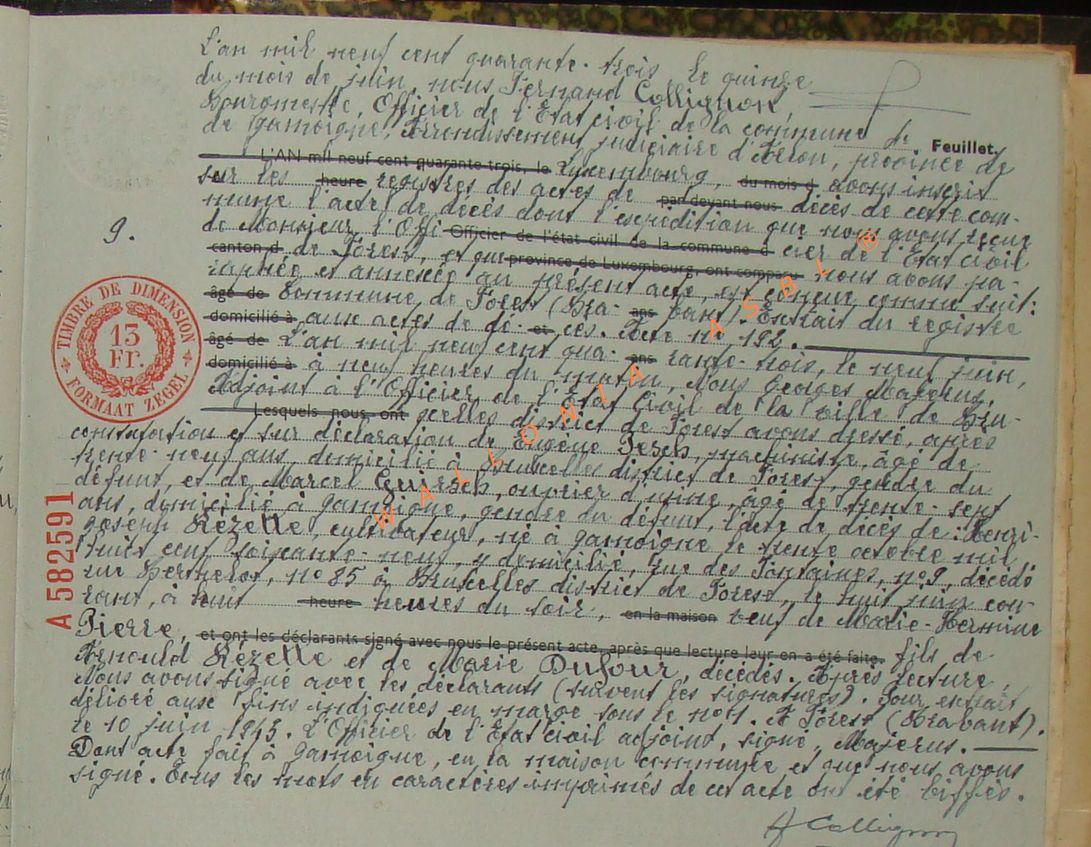 L'an mil neuf cent quarante-trois le quinze
du mois de juin, nous Fernand Collignon,
Bourgmestre, Officier de l'Etat civil de la commune de
Feuillet.
de Jamoigne, Arrondissement judiciaire d'Arlon, province de
L'AN mil neuf cent quarante-trois, le Luxembourg, du mois d avons inscrit
sur les heure registres des actes de par devant nous décès de cette com-
9.
mune l'acte de décès dont l'expédition que nous avons reçue
de Monsieur l'Offi- Officier de l'état civil de la commune d cier de l'Etat civil
canton d de Forest, et que province de Luxembourg, ont comparu nous avons pa-
raphée et annexée au présent acte, est conçue comme suit:
âgé de Commune de Forest (Bra- ans bant). Extrait du registre
domicilié à aux actes de dé- et cès. Acte n° 192.
âgé de L'an mil neuf cent qua- ans rante-trois, le neuf juin,
domicilié à à neuf heures du matin, Nous Georges Majerus,
Adjoint à l'Officier de l'Etat Civil de la Ville de Bru-
Lesquels nous ont xelles district de Forest avons dressé, après
constatation et sur déclaration de Eugène Pesch, machiniste, âgé de
trente-neuf ans, domicilié à Bruxelles district de Forest, gendre du
défunt, et de Marcel ouvrier d'usine, âgé de trente-sept
ans, domicilié à Jamoigne, gendre du défunt, l'acte de décès de: Henri-
Joseph Rézette, cultivateur, né à Jamoigne le trente octobre mil
huit cent soixante-neuf, y domicilié, rue des Fontaines, n° 9, décédé
rue Berthelot, n° 85 à Bruxelles district de Forest, le huit juin cou-
rant, à huit heure heures du soir, en la maison veuf de Marie-Hermine
Pierre, et ont les déclarants signé avec nous le présent acte, après que lecture leur en a été faite. fils de
Arnould Rézette et de Marie Dufour, décédés. Après lecture,
Nous avons signé avec les déclarants (suivent les signatures). Pour extrait
délivré aux fins indiquées en marge sous le n° 4. A Forest (Brabant).
le 10 juin 1943. L'Officier de l'Etat civil adjoint, signé, Majerus.
Dont acte fait à Jamoigne, en la maison commune et que nous avons
signé. Tous les mots en caractères imprimés de cet acte ont été biffés.
Collignon
TIMBRE DE DIMENSION
13
Fr.
FORMAAT ZEGEL
A 582591
WALLONIA ASBL ®